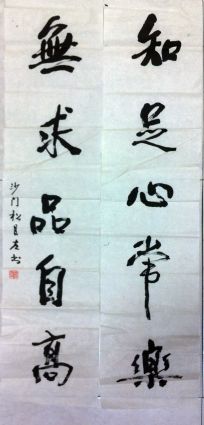 知足心常樂
無求品自高
沙门
书